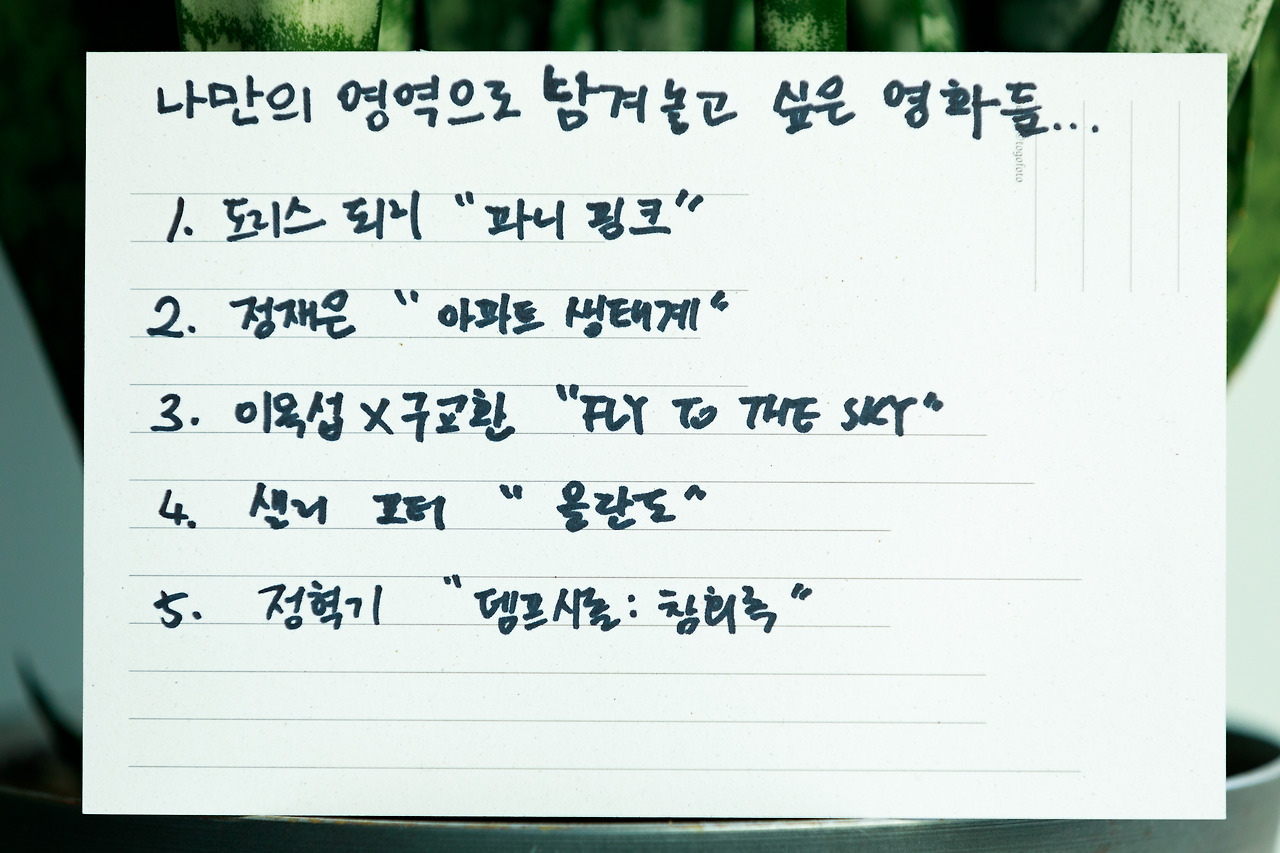 나만의 영역으로 남겨놓고 싶은 영화들...
togofoto
1. 도리스 되리 "파니 핑크"
2. 정재은 "아파트 생태계"
3. 이옥섭 X 구교환 "FLY TO THE SKY"
4. 샐리 포터 "올란도"
5. 정혁기 "뎀프시롤: 참회록"